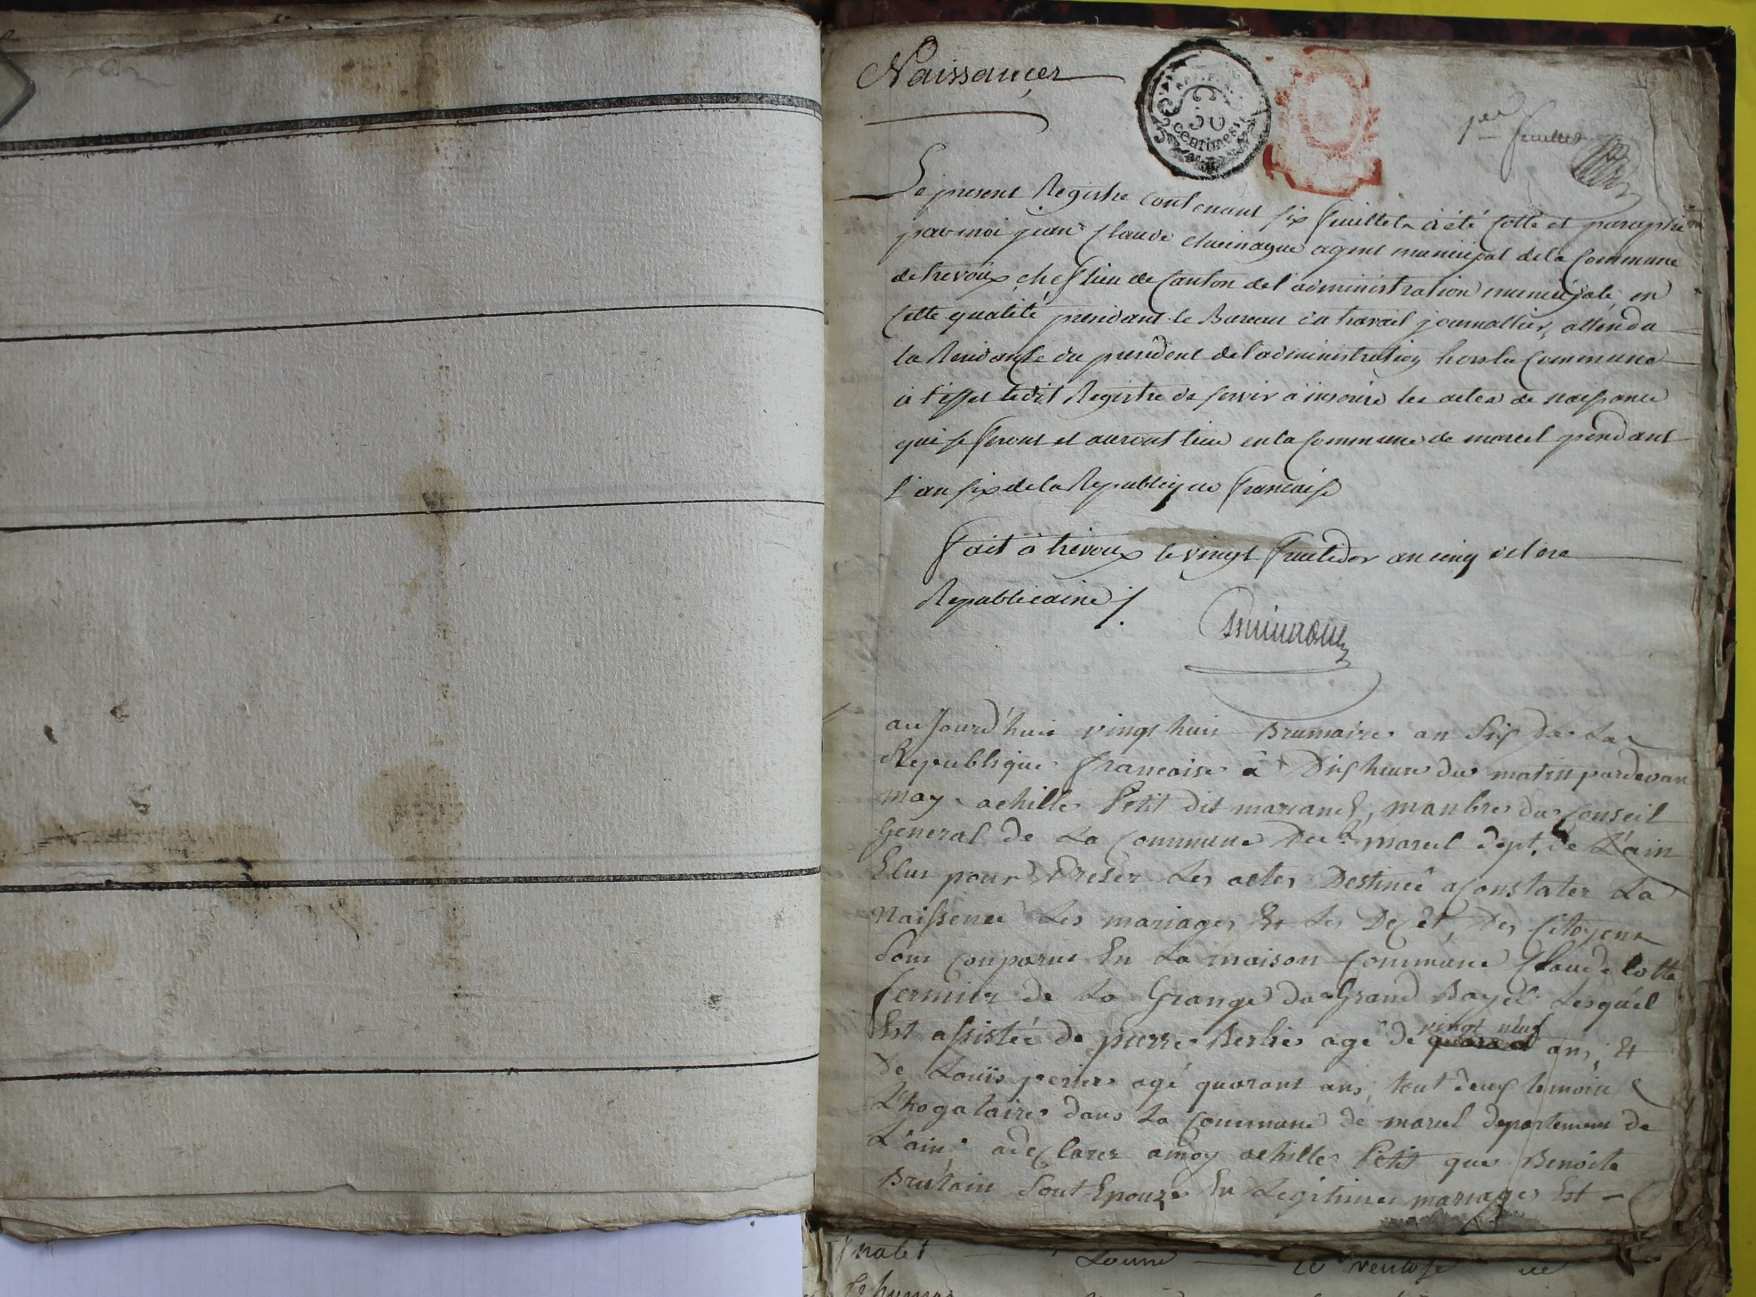 Naissances
50
centimes
1er feuillet
Le present Registre contenant six feuillets a été cotté et paraphé
par moi jean Claude agent municipal de la Commune
de trevoux chef lieu de Canton de l'administration municipale en
cette qualité president le Bureau du travail journallier, attendu
la Residence du president de l'administration hors la Commune
a l'effet ledit Registre de servir a inscrire les actes de naissance
qui se feront et auront lieu en la Commune de marcel pendant
l'an six de la Republique francaise
fait à trevoux le vingt fructidor an cinq de l'ere
Republicaine
aujourd'hui vingt huit Brumaire an Six De La
Republique francaise a Dix heure du matin pardevan
moy achille Petit dit , manbre du Conseil
General de La Commune De marcel dept. de L'ain
Elus pour Dreser Les actes Destiné a Constater La
Naissence Les mariages Et Les Décét, Des Citoyens
Sont Conparus En La maison Commune Claude Cotte
fermier de La Grange du Grand Lesquel
Est assistée de pierre Berlie agé de vingt neuf ans, Et
De Louis perier agé quarant ans, tout deux temoin
dans La Commune de marcel departement de
L'ain. a declarer amoy achille Petit que Benoite
Sont Epouze En Legitime mariage Est
Louise
ventose